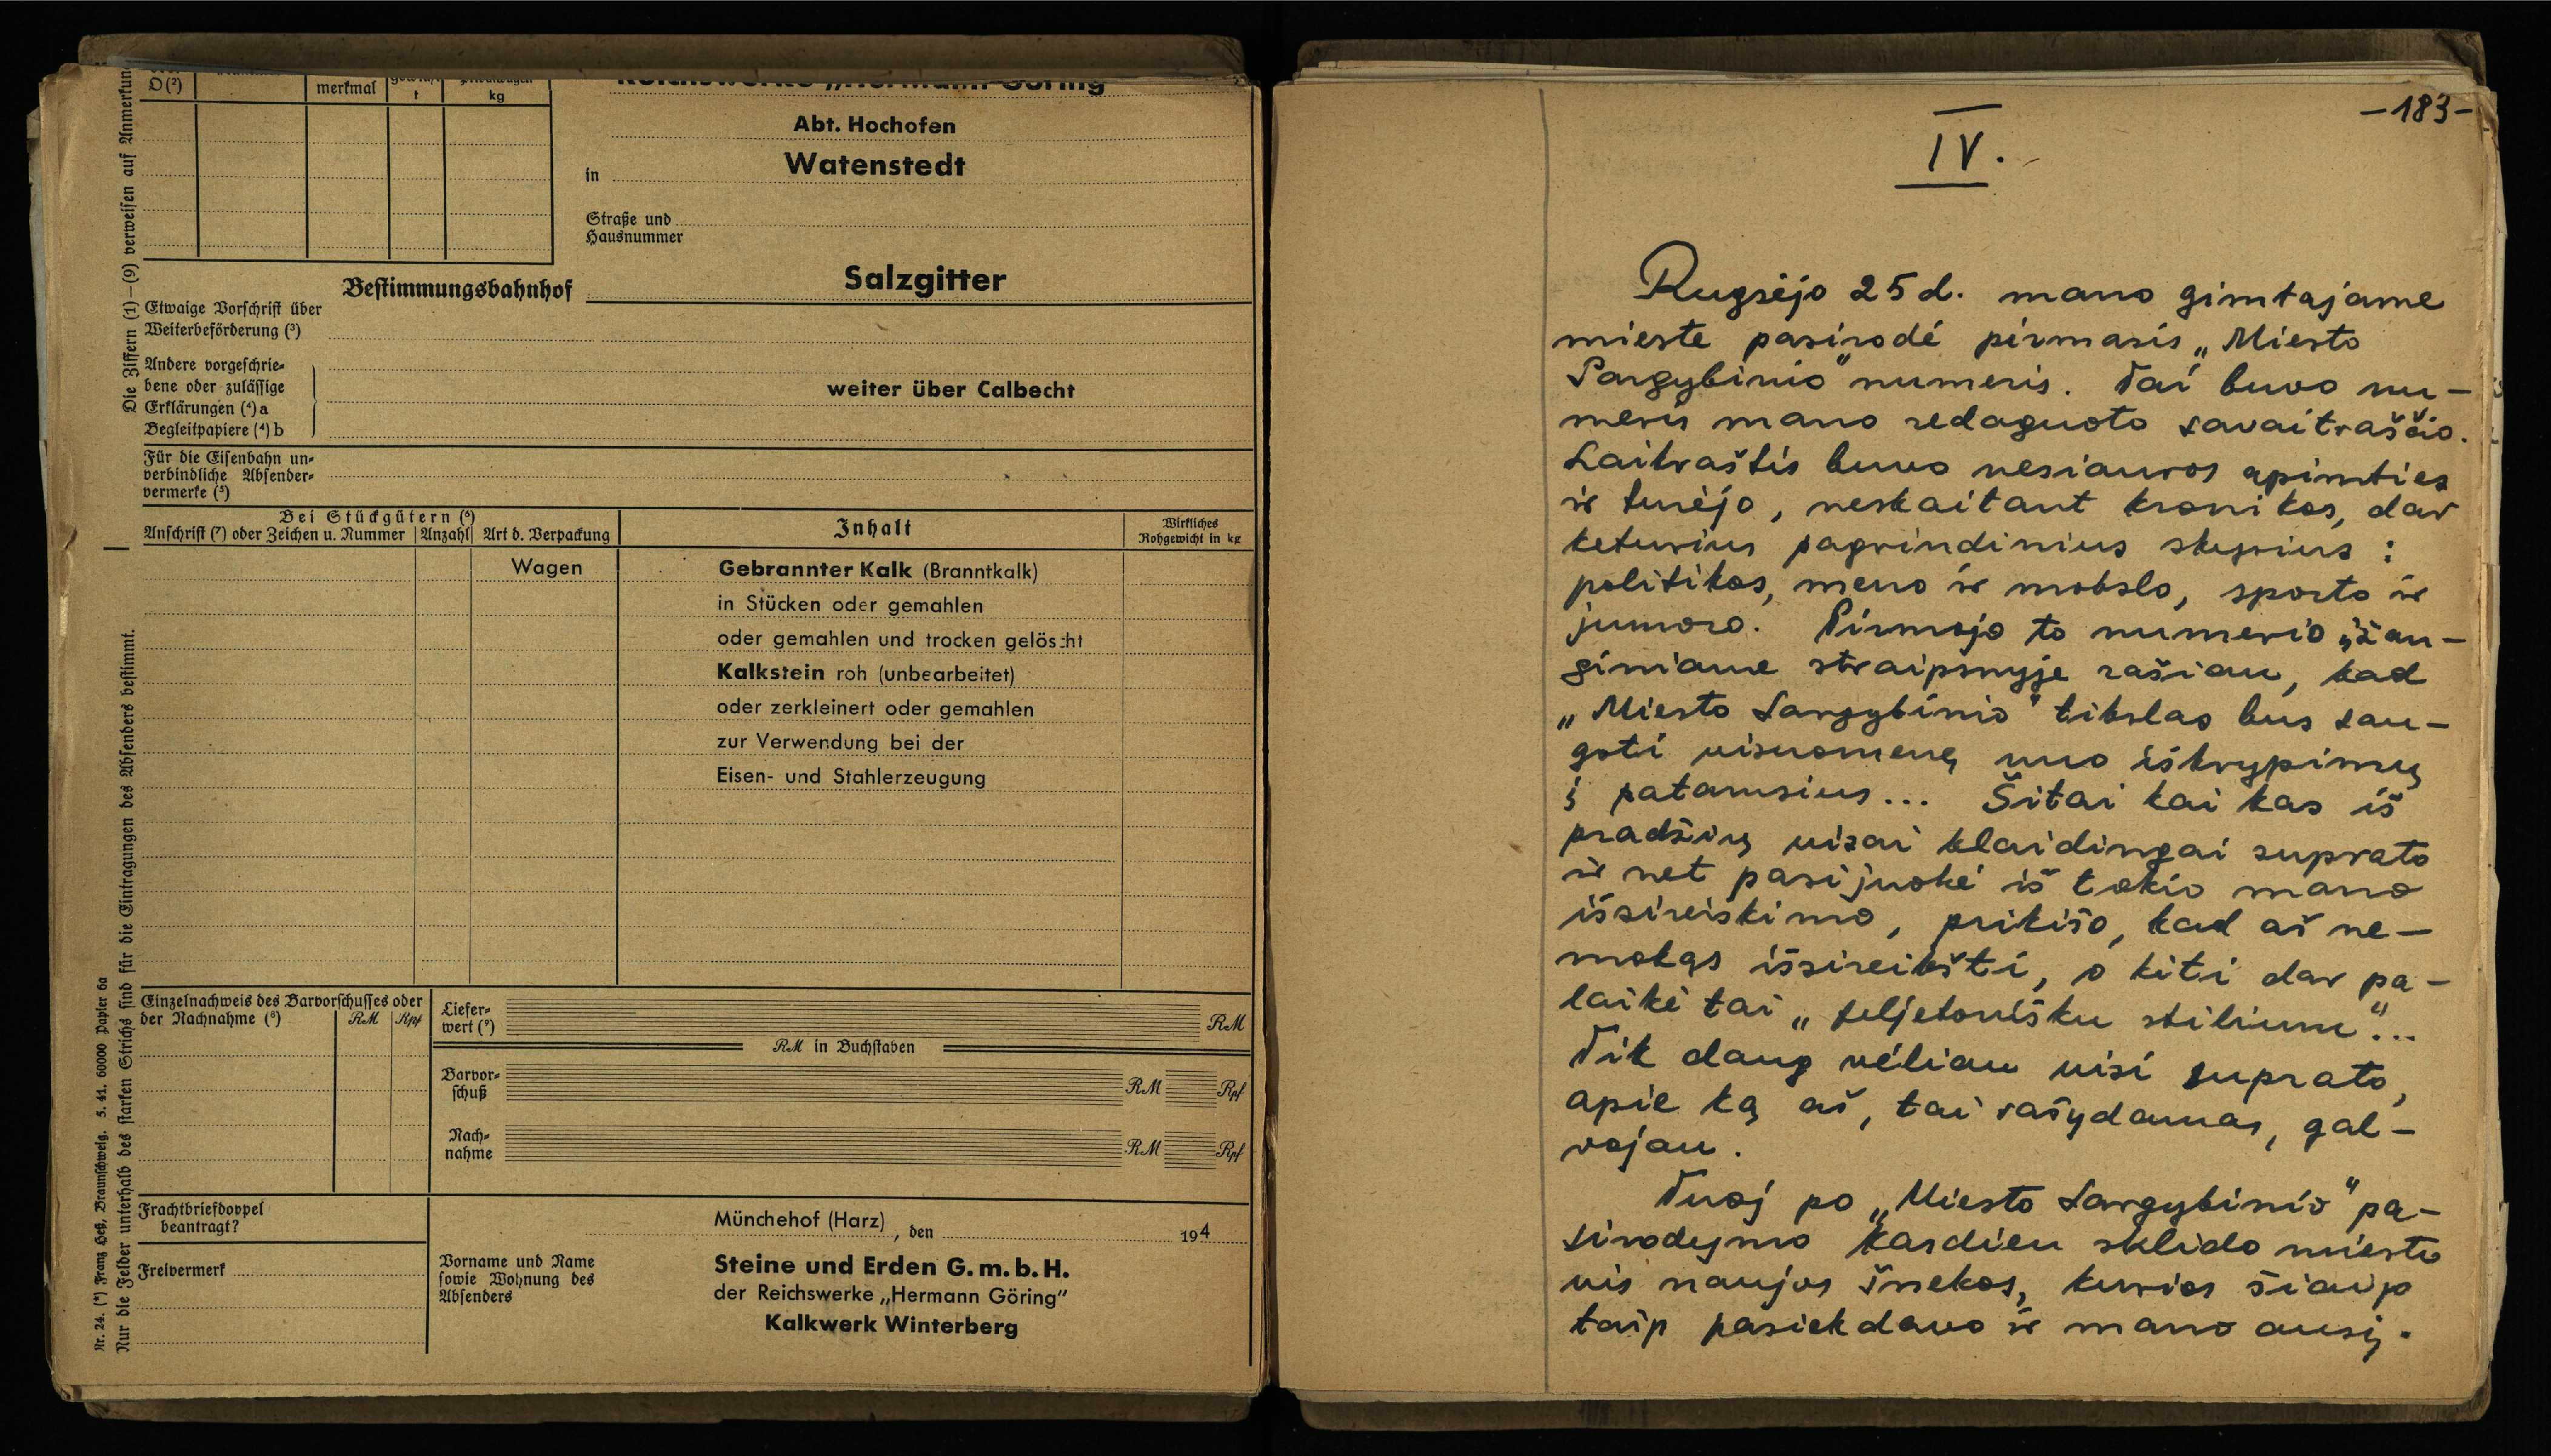 D (²)
merkmal
t
kg
Reichswerke „Hermann Göring
Abt. Hochofen
in Watenstedt
Straße und
Hausnummer
Bestimmungsbahnhof Salzgitter
Etwaige Vorschrift über
Weiterbeförderung (³)
Andere vorgeschrie-
bene oder zulässige
Erklärungen (⁴) a
Begleitpapiere (⁴) b
weiter über Calbecht
Für die Eisenbahn un-
verbindliche Absender-
vermerke (⁵)
Bei Stückgütern (⁶)
Anschrift (⁷) oder Zeichen u. Nummer Anzahl Art d. Verpackung
Inhalt
Wirkliches
Rohgewicht in kg
Wagen Gebrannter Kalk (Branntkalk)
in Stücken oder gemahlen
oder gemahlen und trocken gelöscht
Kalkstein roh (unbearbeitet)
oder zerkleinert oder gemahlen
zur Verwendung bei der
Eisen- und Stahlerzeugung
Einzelnachweis des Barvorschusses oder
der Nachnahme (⁸) RM Rpf
Liefer-
wert (⁹) RM
RM in Buchstaben
Barvor-
schuß RM Rpf
Nach-
nahme RM Rpf
Frachtbriefdoppel
beantragt?
Freivermerk
Münchehof (Harz), den 194
Vorname und Name
sowie Wohnung des
Absenders
Steine und Erden G.m.b.H.
der Reichswerke „Hermann Göring"
Kalkwerk Winterberg
Die Ziffern (1)–(9) verweisen auf Anmerkun
Nur die Felder unterhalb des starken Strichs sind für die Eintragungen des Absenders bestimmt.
Nr. 24. (*) Franz Heß, Braunschweig. 5. 41. 60000 Papier 6a
–183–
IV.
Rugsėjo 25 d. mano gimtajame
mieste pasirodė pirmasis „Miesto
Sargybinio" numeris. Tai buvo nu–
meris mano redaguoto savaitraščio.
Laikraštis buvo nesiauros apimties
ir turėjo, neskaitant kronikos, dar
keturius pagrindinius skyrius:
politikos, meno ir mokslo, sporto ir
jumoro. Pirmojo to numerio įžan–
giniame straipsnyje rašiau, kad
„Miesto Sargybinio" tikslas bus sau–
goti visuomenę nuo iškrypimų
į patamsius... Šitai kai kas iš
pradžių visai klaidingai suprato
ir net pasijuokė iš tokio mano
išsireiskimo, prikišo, kad aš ne–
mokąs išsireikšti, o kiti dar pa–
laikė tai „feljetonišku stilium"...
Tik daug vėliau visi suprato,
apie ką aš, tai rašydamas, gal–
vojau.
Tuoj po „Miesto Sargybinio" pa–
sirodymo kasdien sklido mieste
vis naujos šnekos, kurios šiaip
taip pasiekdavo ir mano ausį.